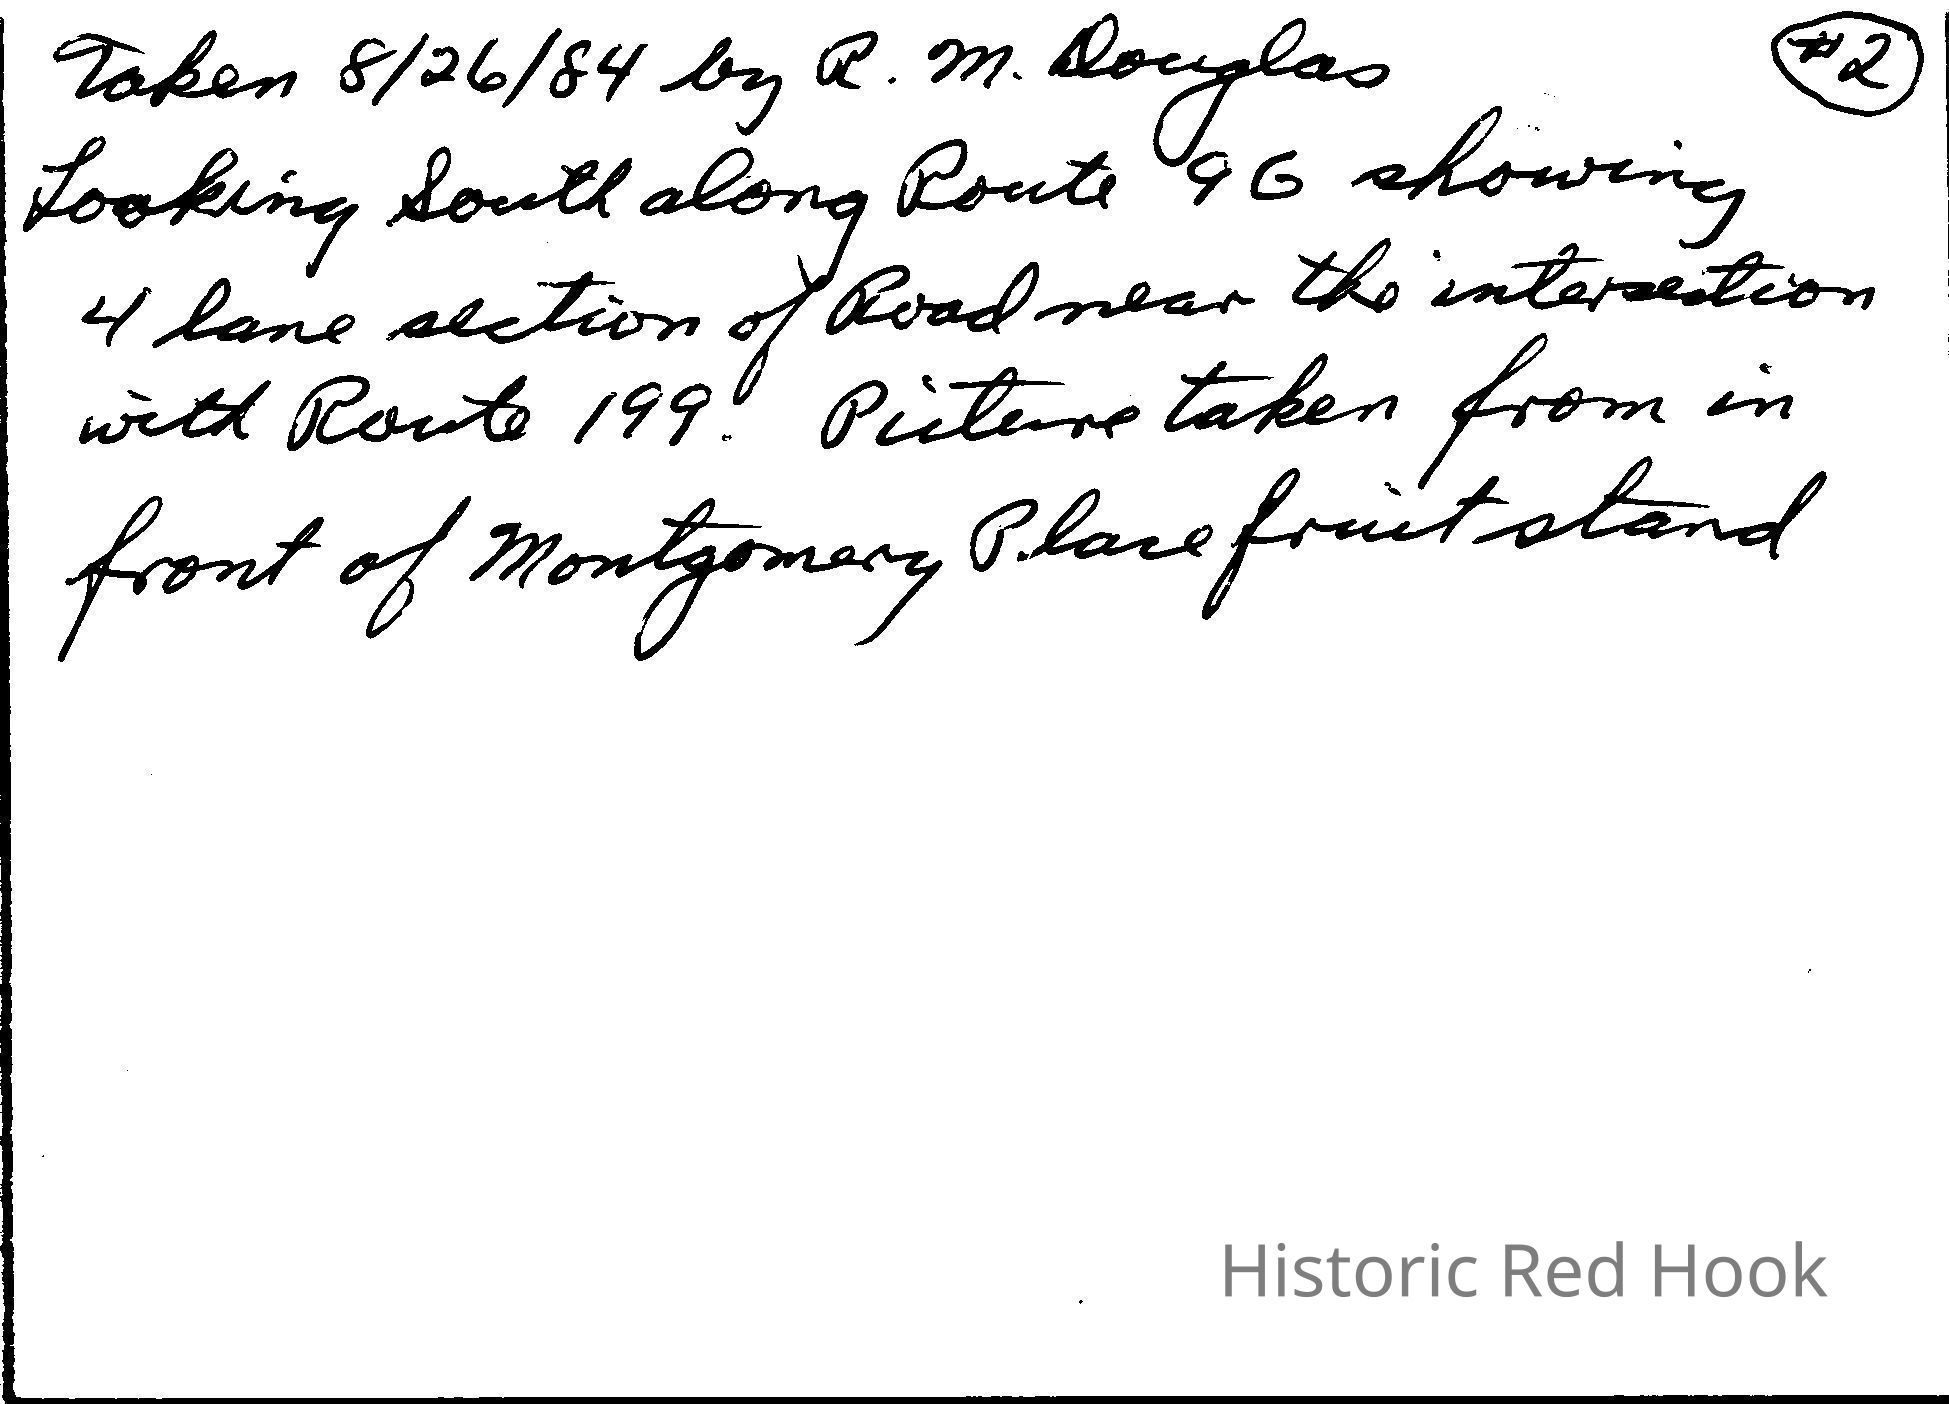 Taken 8/26/84 by R. M. Douglas #2
Looking South along Route 9G showing
4 lane section of Road near the intersection
with Route 199. Picture taken from in
front of Montgomery Place fruit stand
Historic Red Hook